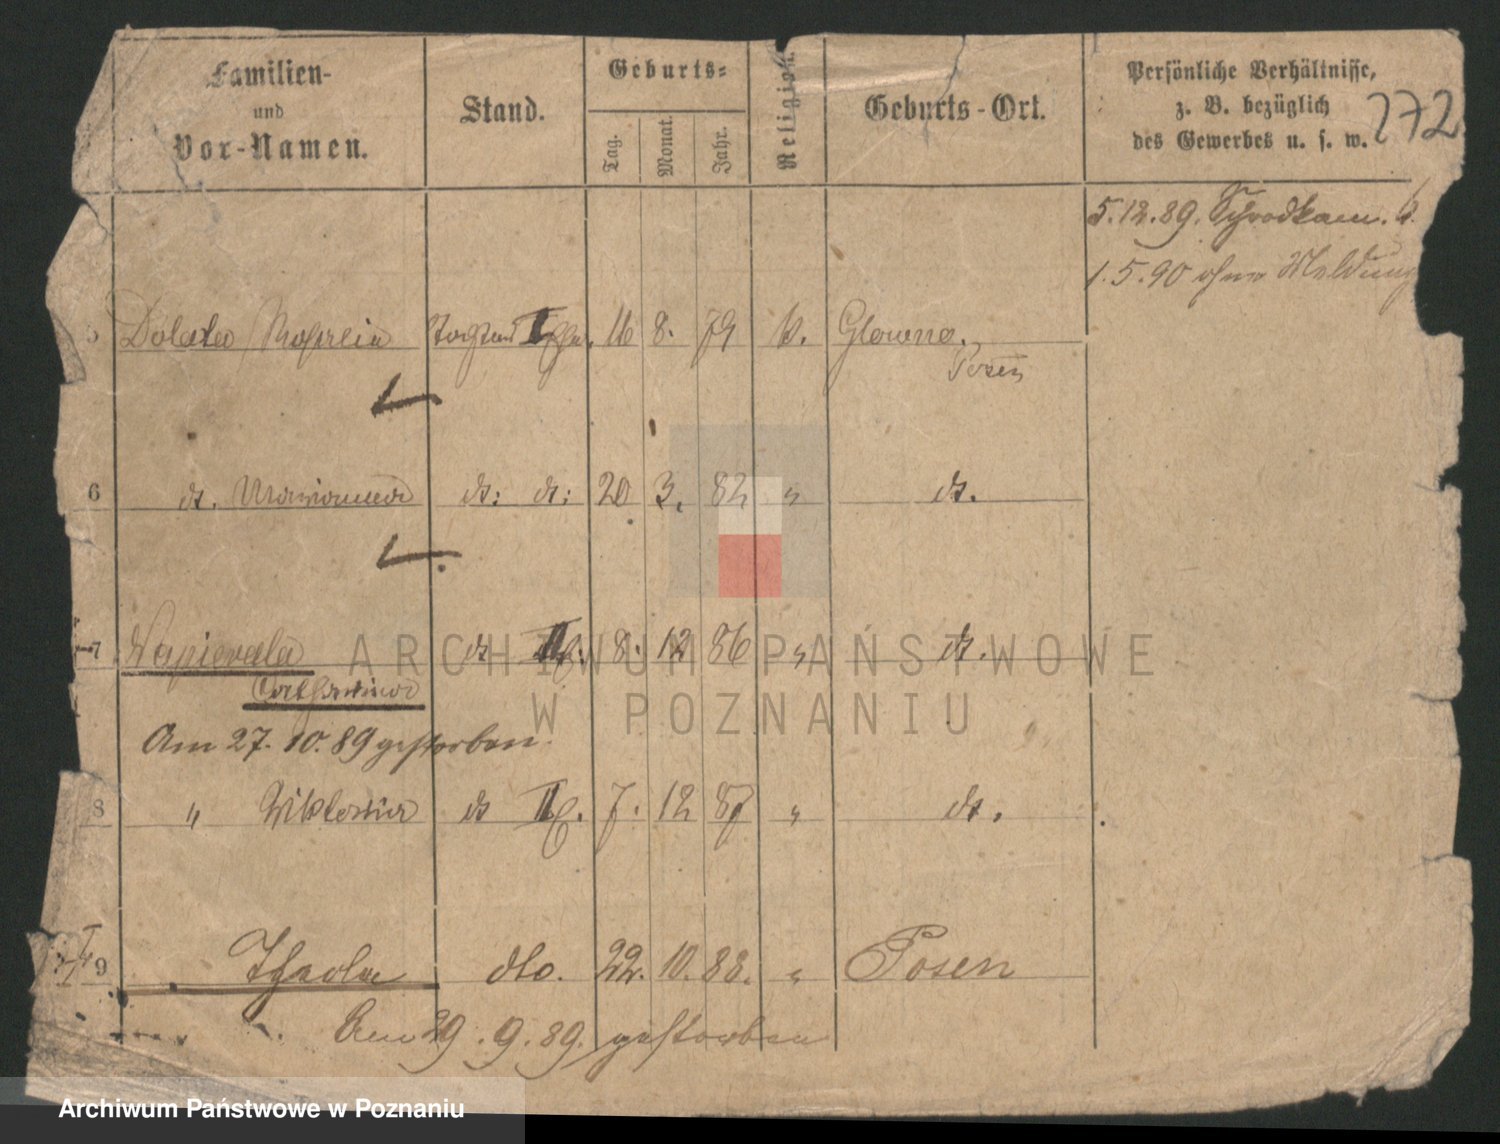 Familien-
und
Vor-Namen.
Stand.
Geburts-
Tag.
Monat.
Jahr.
Religion.
Geburts-Ort.
Persönliche Verhältnisse,
z. B. bezüglich
des Gewerbes u. s. w.
272
5.12.89.
1.5.90 ohne Meldung
5 Dolata I 16 8. 79 k. Glowno.
Posen
6 do. Marianna do: do: 20 3. 82 " do.
7 Napierala do II 8. 12 86 " do.
Catharina
Am 27.10.89 gestorben.
8 " Wiktoria do II 7. 12 87 " do.
9 Thekla dto. 22. 10. 88. " Posen
Am 29.9.89. gestorben
ARCHIWUM PAŃSTWOWE
W POZNANIU
Archiwum Państwowe w Poznaniu